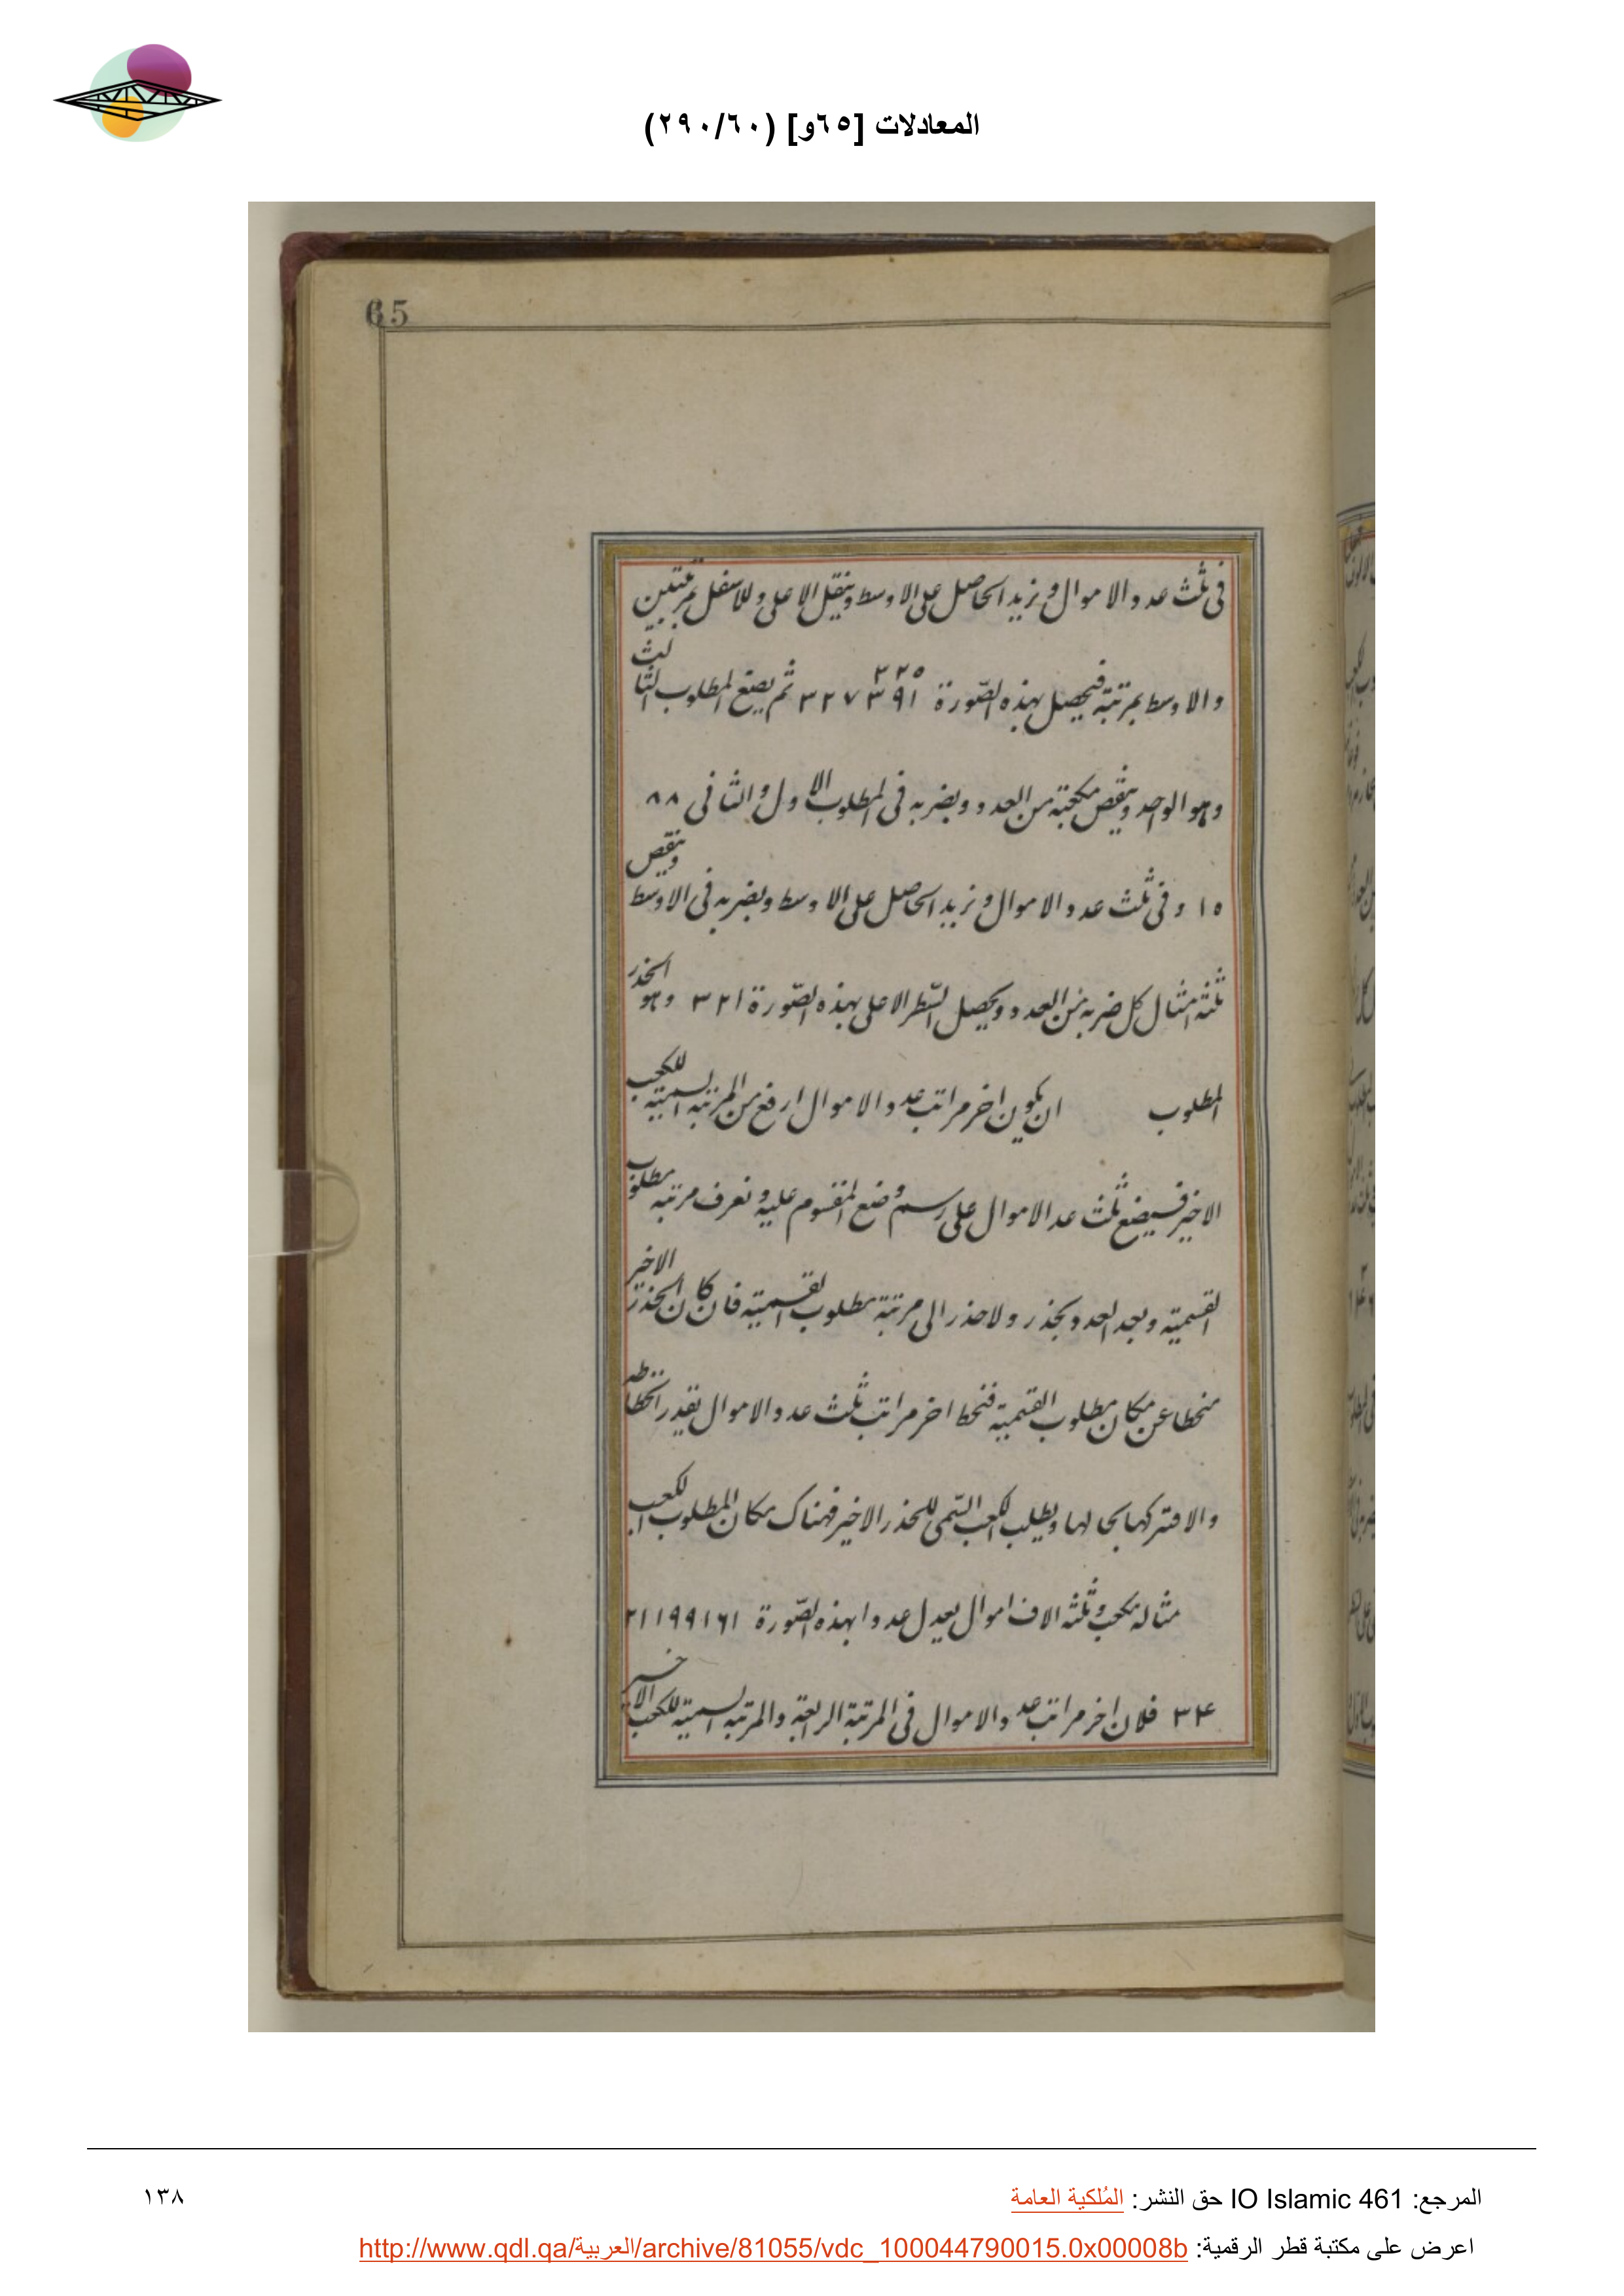 المعادلات [٦٥و] (٢٩٠/٦٠)
65
فى ثلث عدد الاموال و نزيد الحاصل على الاوسط و ينقل الاعلى و للاسفل بمرتبتين
والاوسط بمرتبة فيحصل بهذه الصّورة ٣٢٧٣٩١ ٢٢٥ ثم يضع المطلوب الثالث
وهو الواحد و ينقص مكعبته من العدد ويضربه فى المطلوب الاول والثانى ٨٨
١٥ و فى ثلث عدد الاموال و نزيد الحاصل على الاوسط ويضربه فى الاوسط وينقص
ثلثة امثال كل ضربه من العدد ويحصل السّطر الاعلى بهذه الصّورة ٣٢١ وهو الجذر
المطلوب ان يكون اخر مراتب عدد الاموال ارفع من المرتبة السمية للكعب
الاخير فيضع ثلث عد الاموال على رسم وضع المقسوم عليه و نعرف مرتبة مطلوب
القسمية و بعد العدد بجذر و لاجذر الى مرتبة مطلوب القسمية فان كان الجذر الاخير
منحطا عن مكان مطلوب القسمية فنحط اخر مراتب ثلث عدد الاموال بقدر انحطاطه
والا فنتركها بحالها و يطلب الكعب السّمى للجذر الاخير فهناك مكان المطلوب الكعب
مثاله مكعب و ثلثه الاف اموال يعدل عددا بهذه الصّورة ٢١١٩٩١٦١
٣٤ فلان اخر مراتب عدد الاموال فى المرتبة الرابعة والمرتبة السمية للكعب الاخير
المرجع: IO Islamic 461 حق النشر: المُلكية العامة
١٣٨
اعرض على مكتبة قطر الرقمية: http://www.qdl.qa/العربية/archive/81055/vdc_100044790015.0x00008b